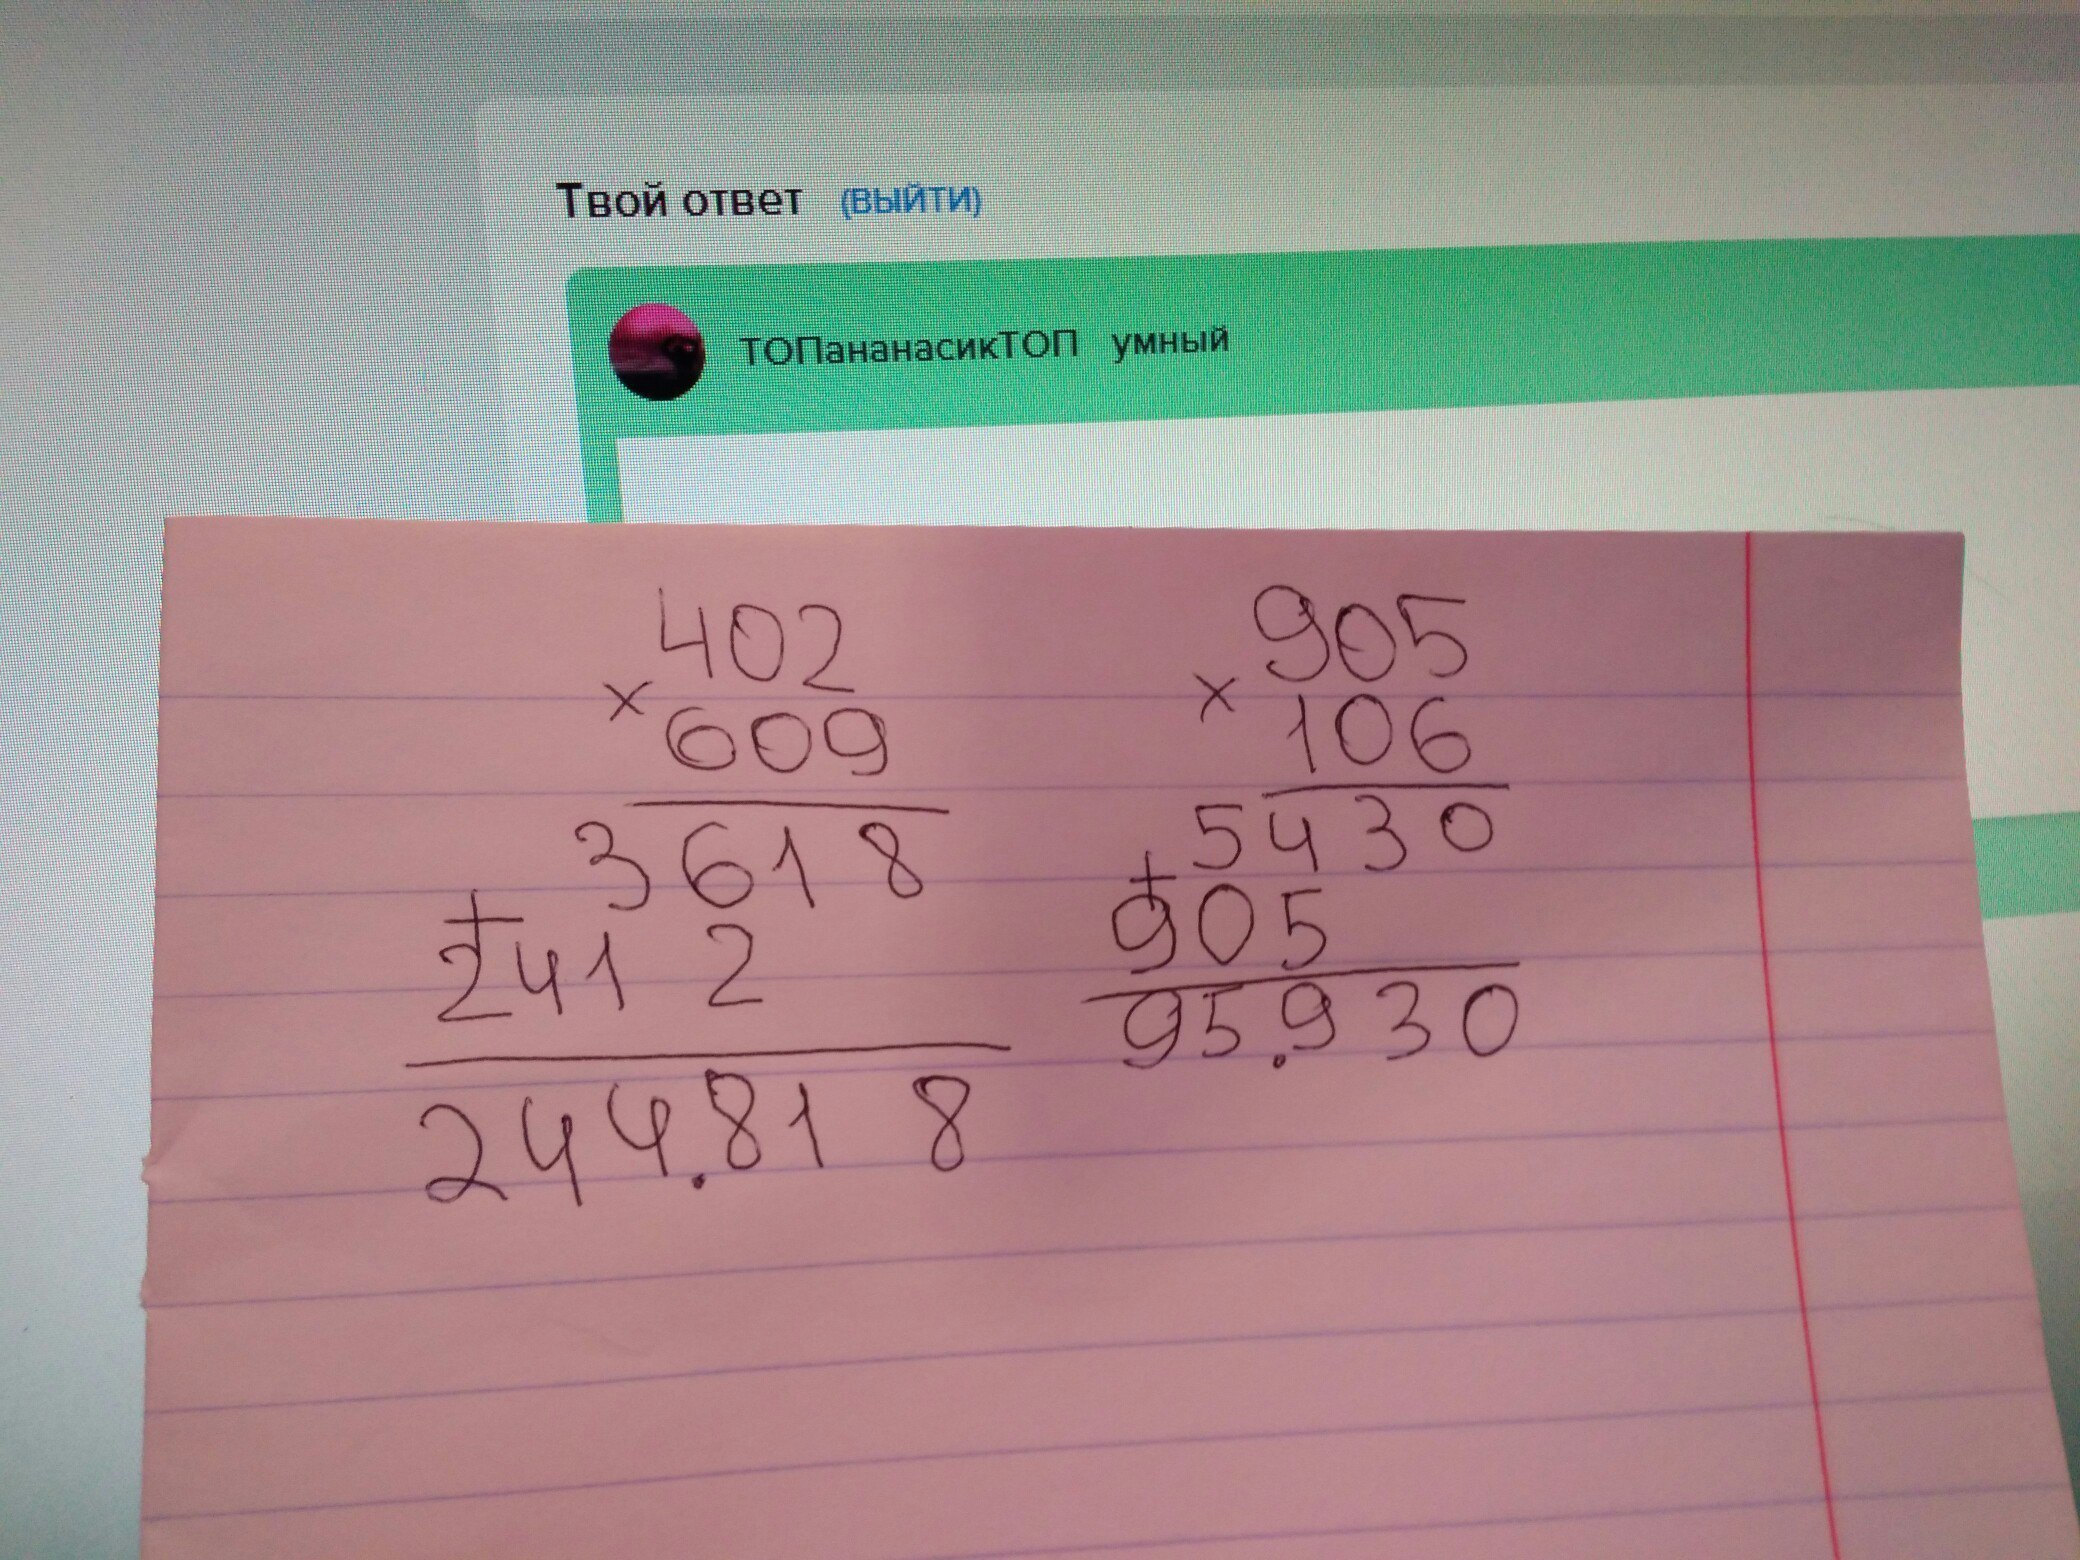 Твой ответ (ВЫЙТИ)
ТОПананасикТОП умный
402
× 609
3618
+
2412
244.818
905
× 106
5430
+
905
95.930